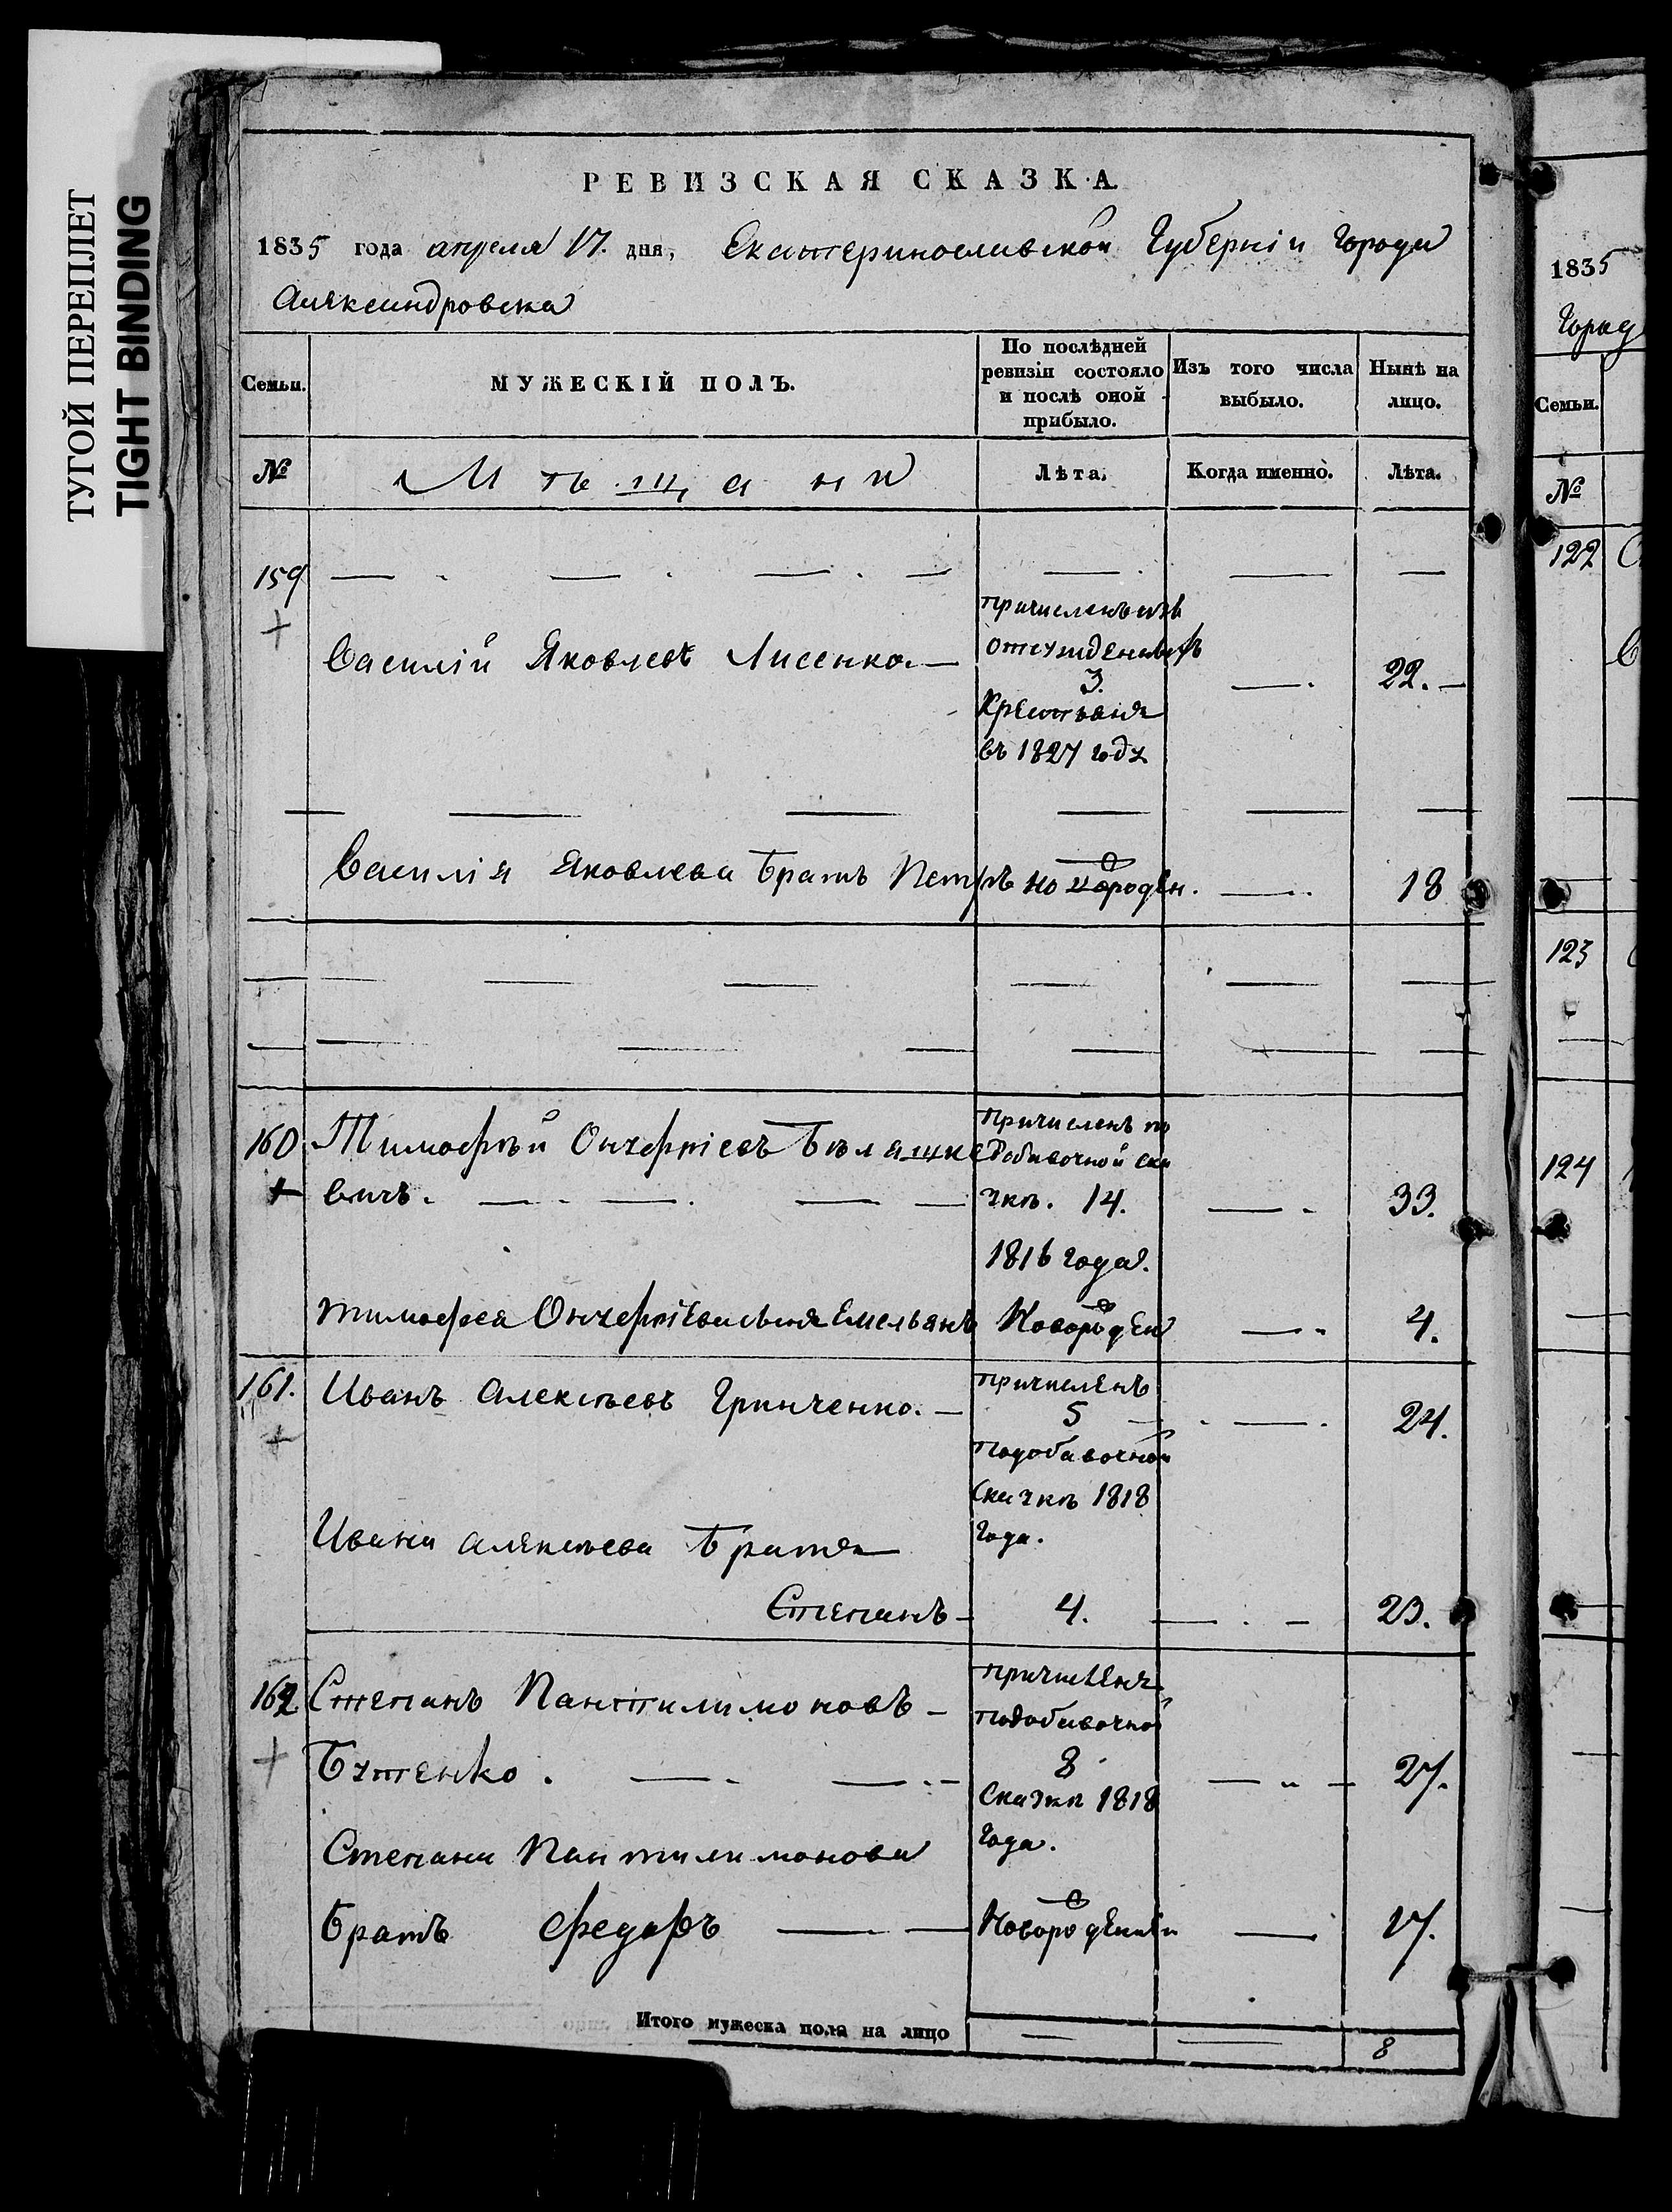 ТУГОЙ ПЕРЕПЛЕТ
TIGHT BINDING
РЕВИЗСКАЯ СКАЗКА.
1835 года апреля 17. дня, Екатеринославской Губерніи Города
Александровска
Семьи.
МУЖЕСКІЙ ПОЛЪ.
По послѣдней ревизіи состояло и послѣ оной прибыло.
Изъ того числа выбыло.
Нынѣ на лицо.
№
Мѣщани
Лѣта.
Когда именно.
Лѣта.
159
причисленъ изъ
Василій Яковлевъ Лисенко.
3.
22.
Крестьянъ
въ 1827 году
Василія Яковлева братъ Петръ
новороден.
18
160
Тимофѣй Онуфріевъ Бѣляшке
вичъ.
причисленъ по
добавочной ска
зкѣ. 14.
33.
1816 года.
Тимофея Онуфріева сынъ Емельянъ
Новороден
4.
161.
Иванъ Алексѣевъ Гринченко.
причисленъ
5
24.
подобавочной
сказкѣ 1818
года.
Ивана Алексѣева братъя
Степанъ
4.
23.
162
Степанъ Пантилимоновъ
Бутенко.
причисленъ
подобавочной
8
27.
сказкѣ 1818
года.
Степана Пантилимонова
братъ Федоръ
0
Новорожденны
17.
Итого мужеска пола на лицо
8
1835
Город
Семьи.
№
122
123
124